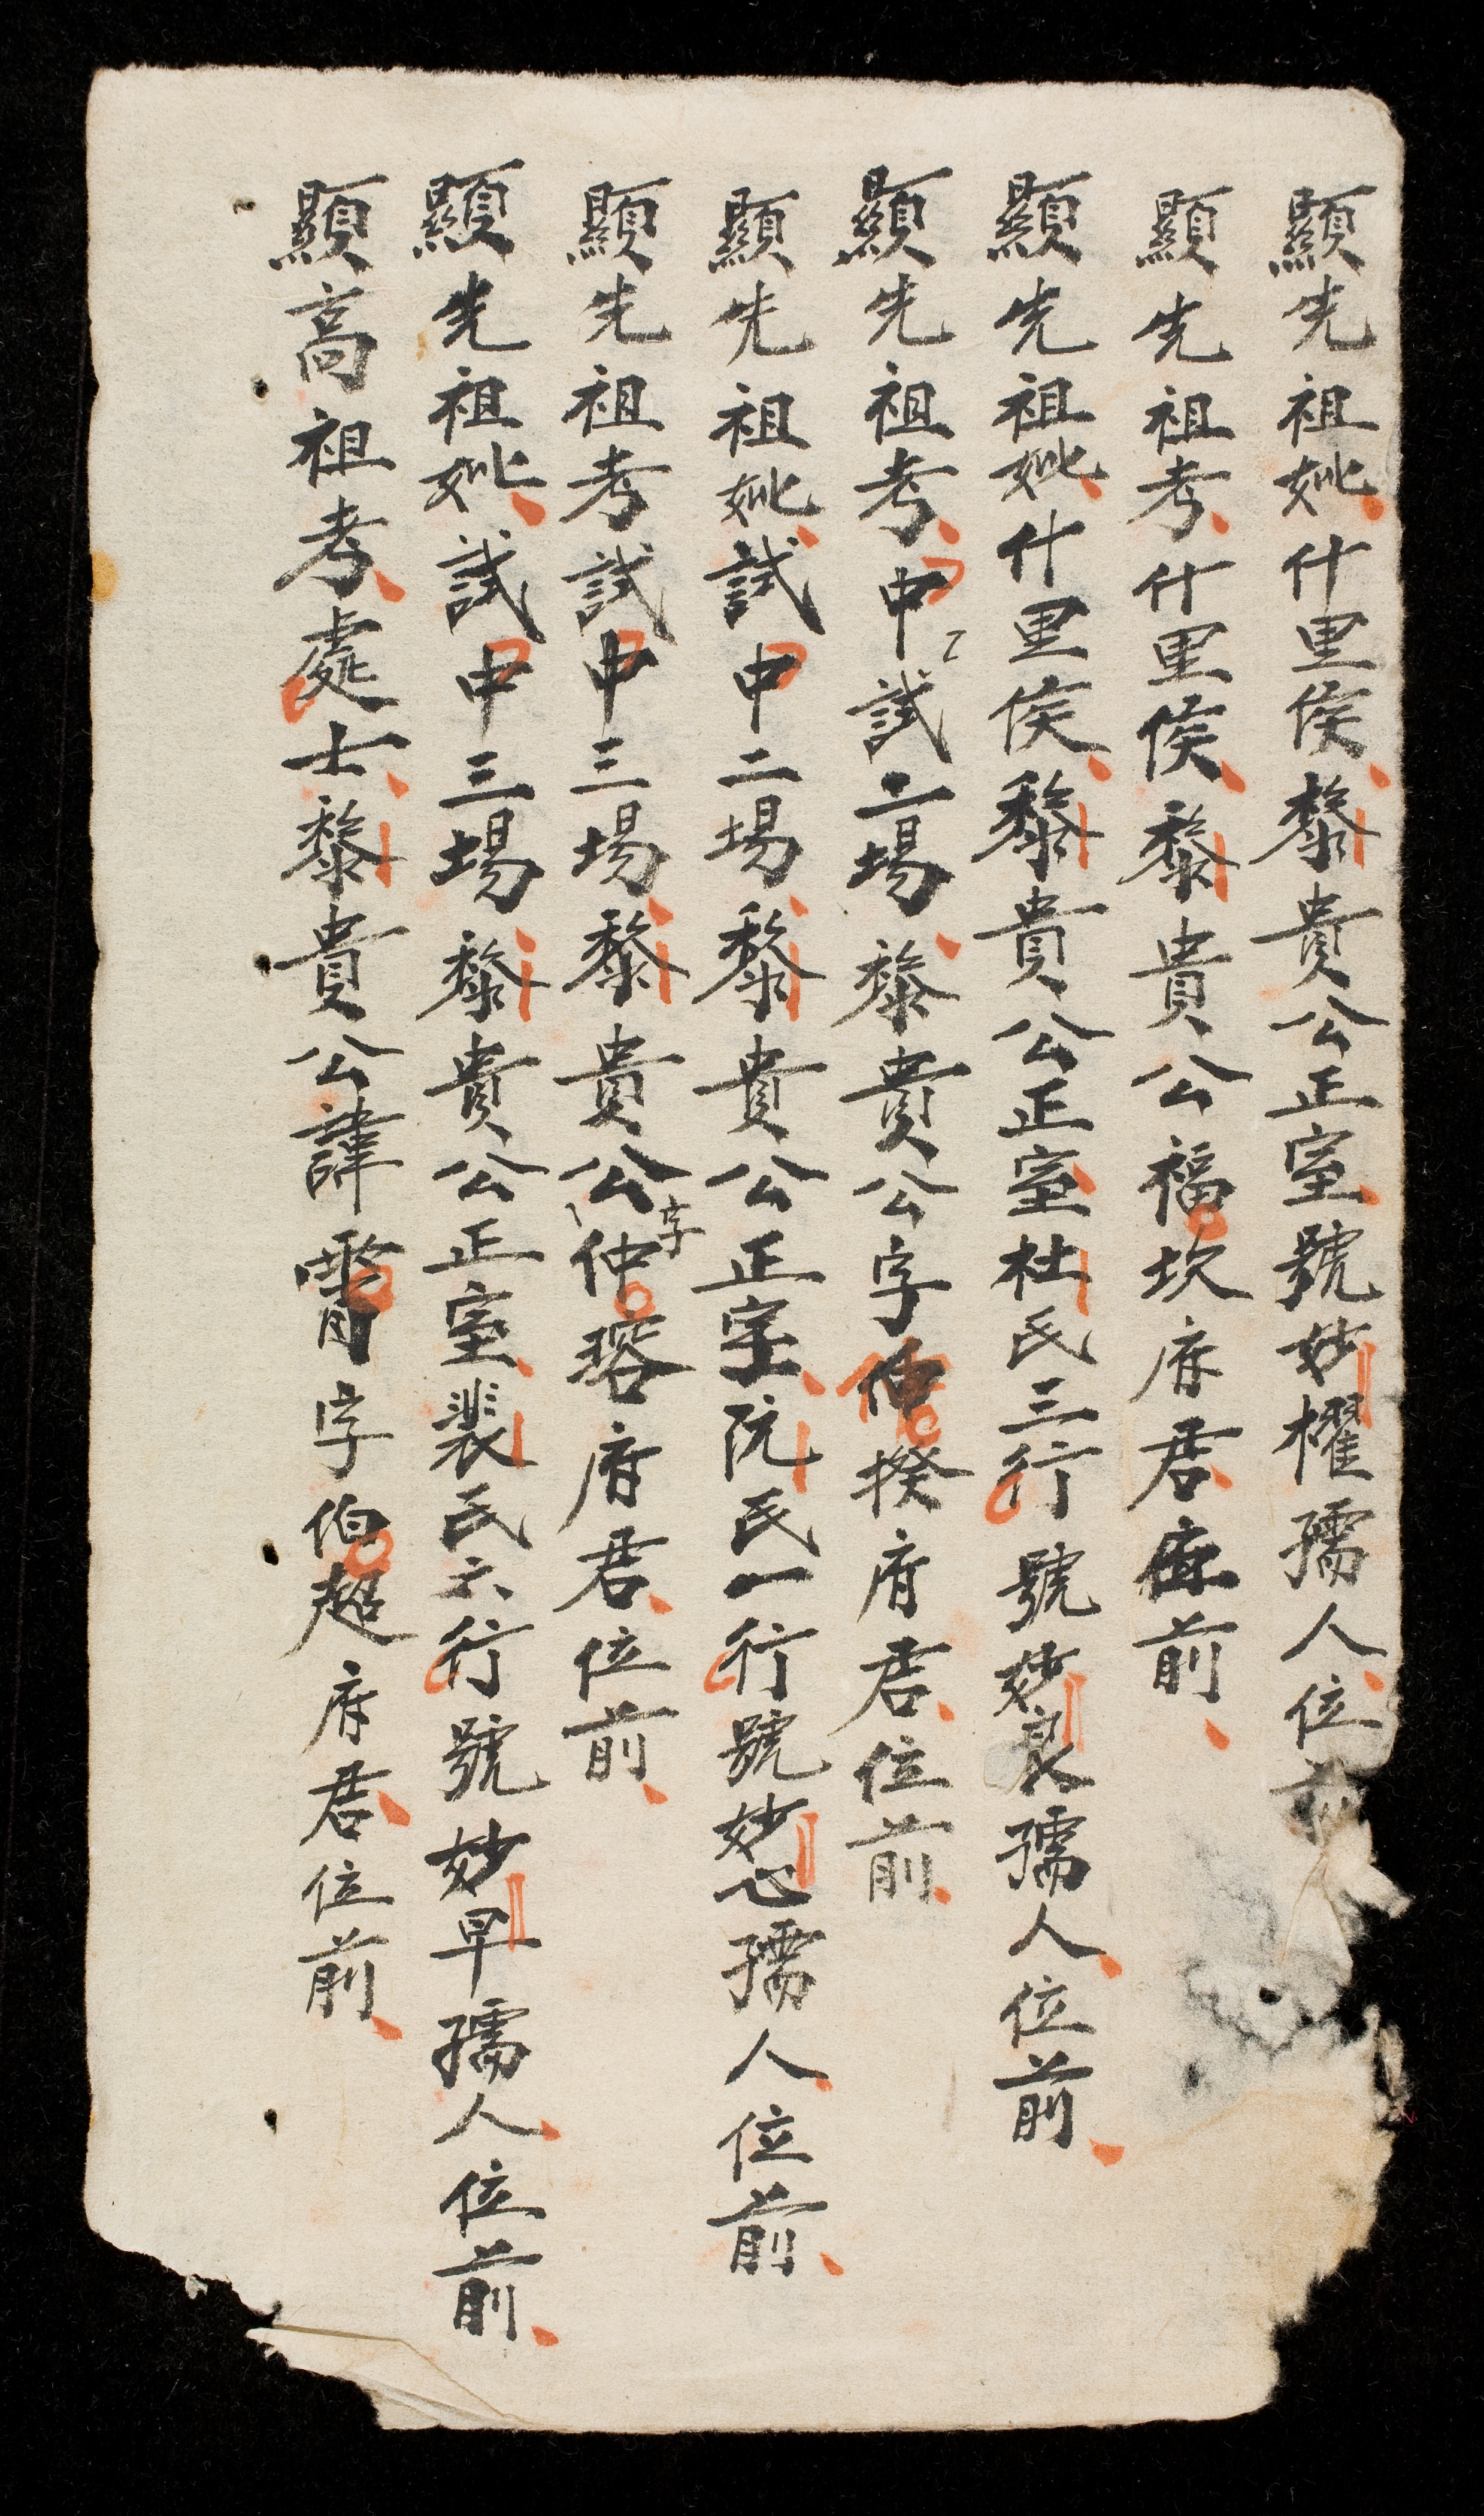 顯先祖妣什里侯黎貴公正室號妙櫂孺人位前
顯先祖考什里侯黎貴公福坎府君座前
顯先祖妣什里侯黎貴公正室杜氏三行號妙良孺人位前
顯先祖考中試二場黎貴公字仲揆府君位前
顯先祖妣試中二場黎貴公正室阮氏一行號妙心孺人位前
顯先祖考試中三場黎貴公字仲瑢府君位前
顯先祖妣試中三場黎貴公正室裴氏六行號妙早孺人位前
顯高祖考處士黎貴公諱字伯超府君位前